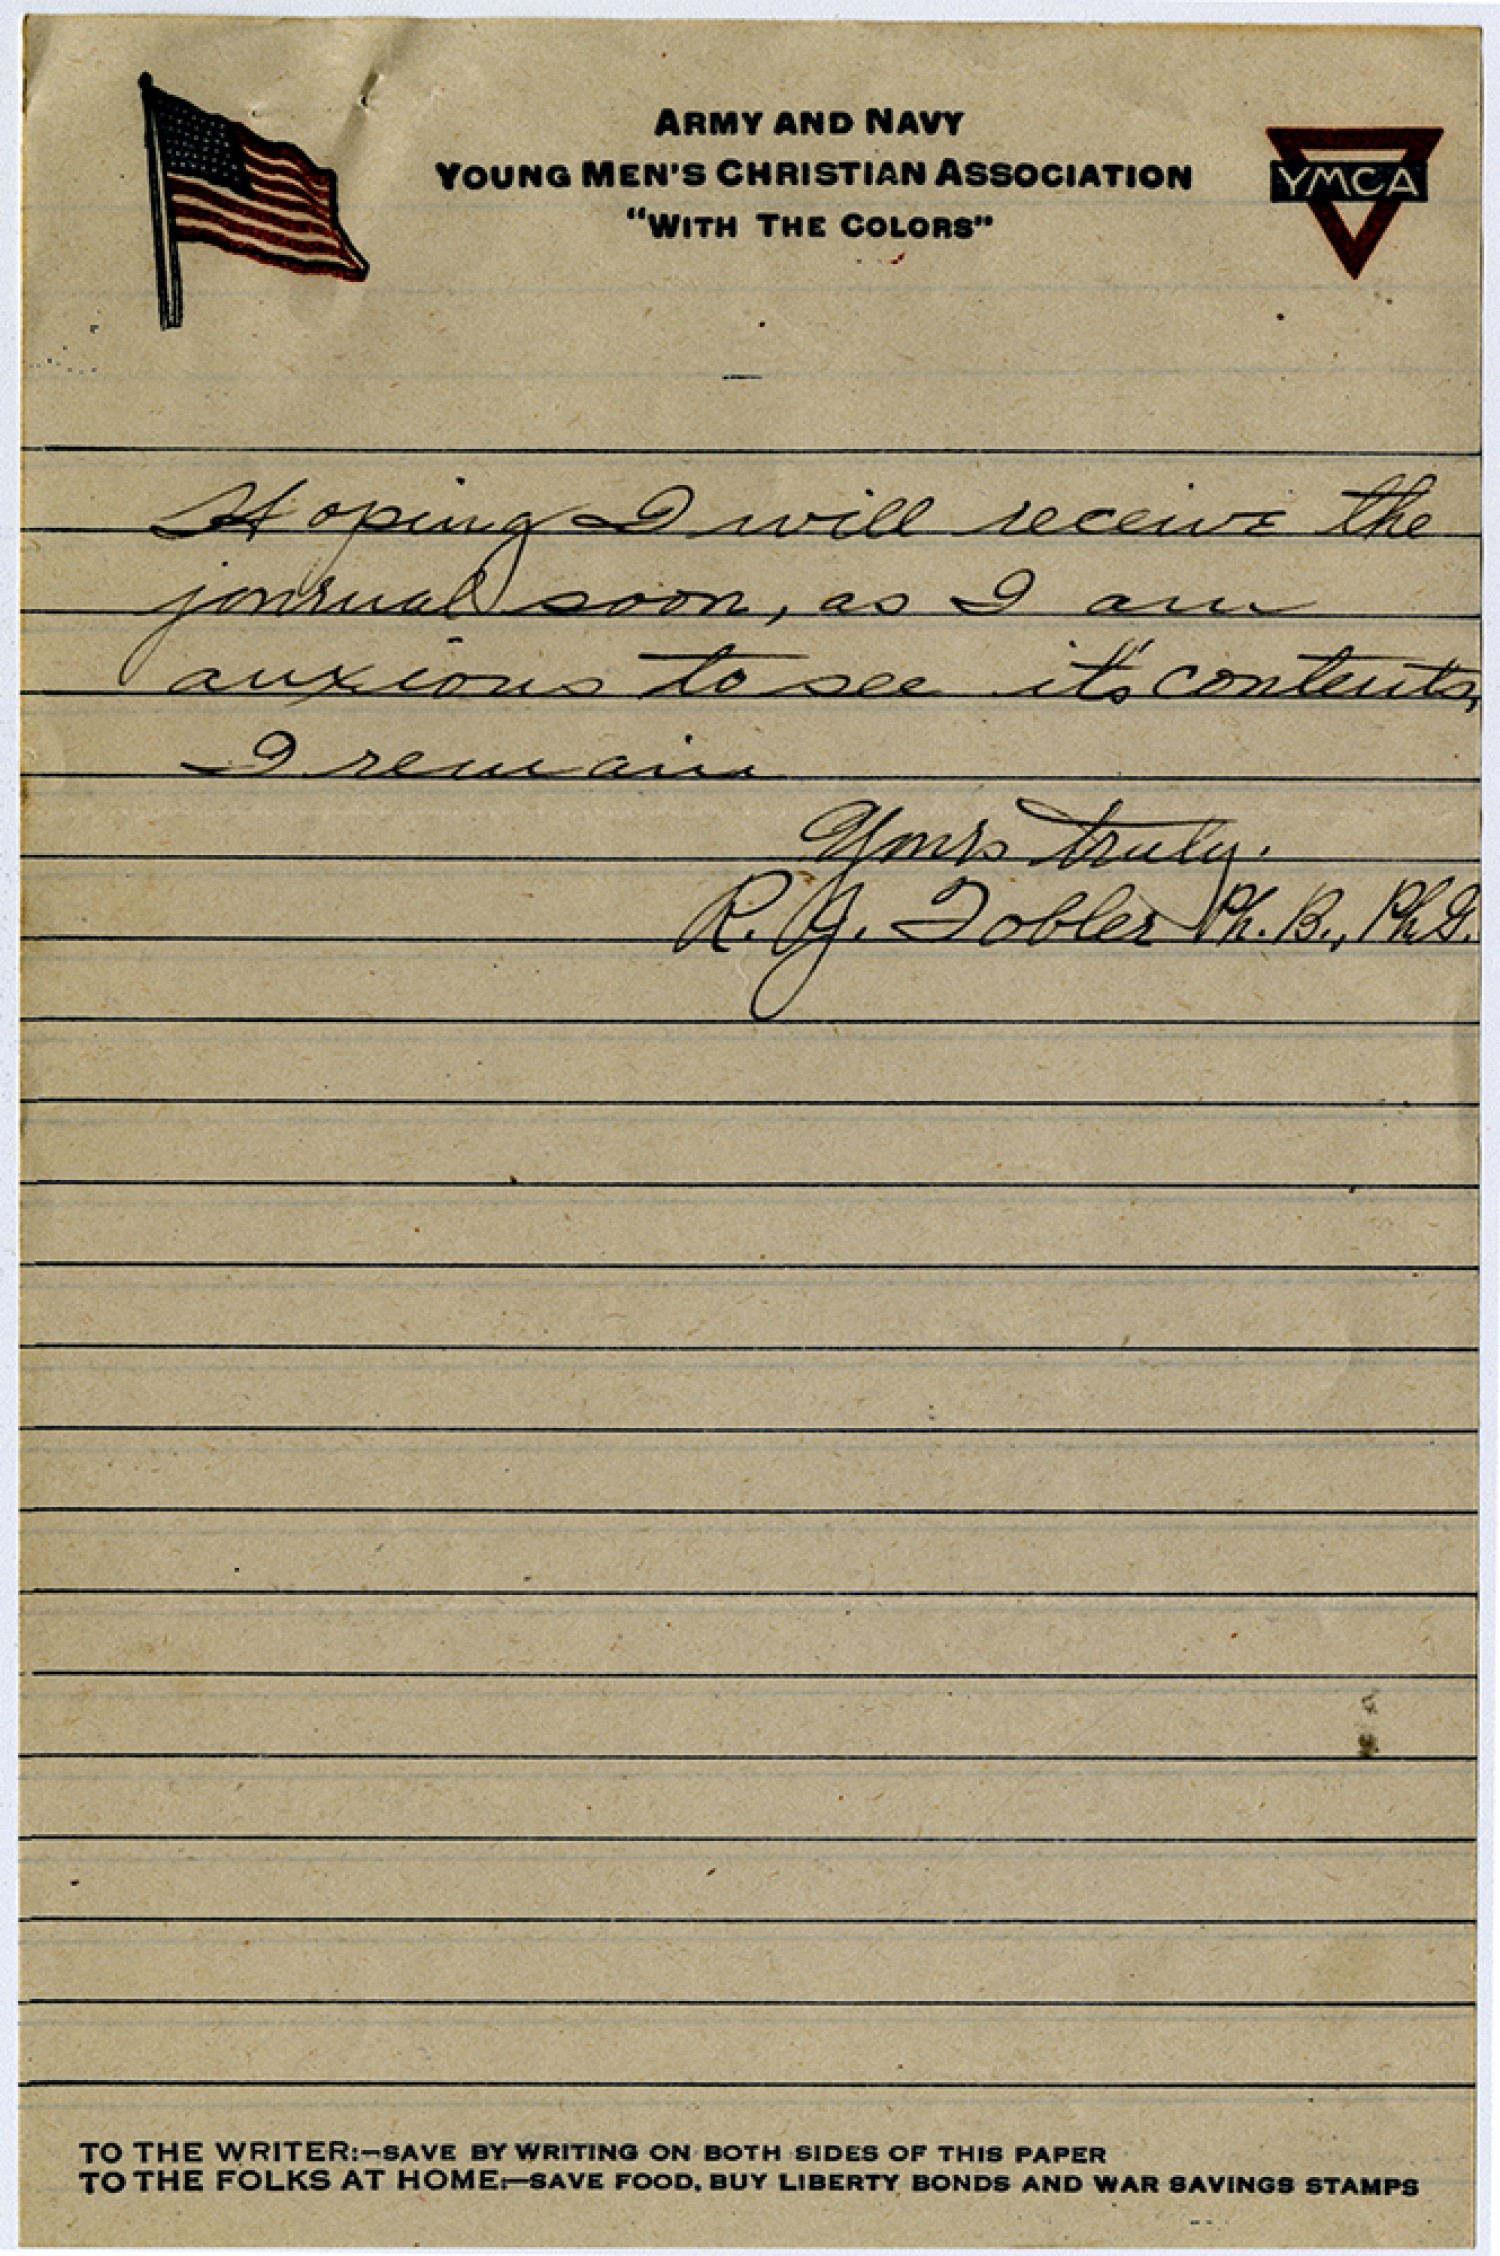 ARMY AND NAVY
YOUNG MEN'S CHRISTIAN ASSOCIATION
"WITH THE COLORS"
YMCA
Hoping I will receive the
journal soon, as I am
anxious to see it's contents,
I remain
Yours truly.
R. J. Tobler Ph. B., Ph.G.
TO THE WRITER:—SAVE BY WRITING ON BOTH SIDES OF THIS PAPER
TO THE FOLKS AT HOME:—SAVE FOOD, BUY LIBERTY BONDS AND WAR SAVINGS STAMPS